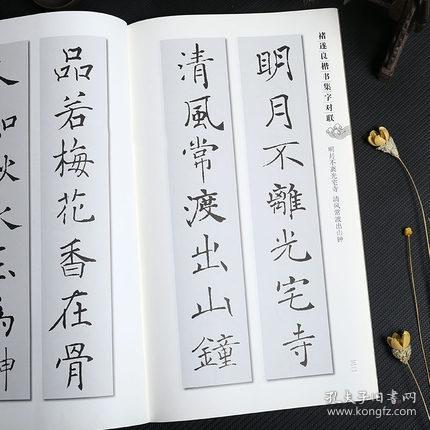 褚遂良楷书集字对联
明月不离光宅寺 清风常渡出山钟
明月不離光宅寺
清風常渡出山鐘
品若梅花香在骨
人如秋水玉為神
孔夫子旧书网
www.kongfz.com